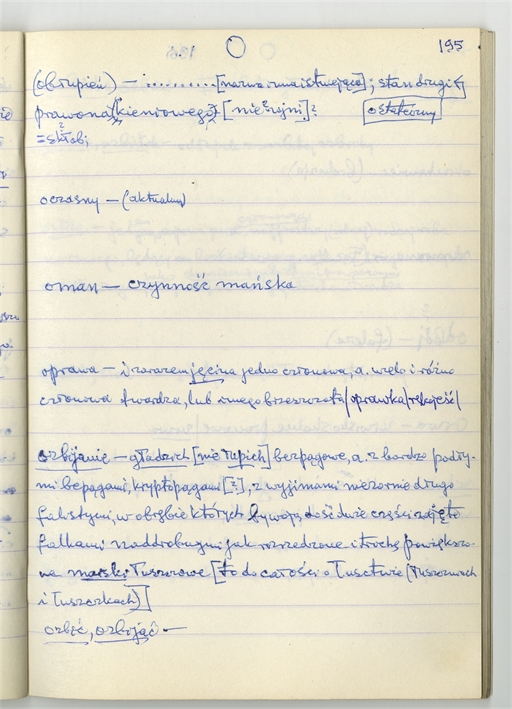 195
(obłupień) – .......... [nazwa ima istniejące]; stan drugi
prawona/kieniowego [nie zrojni]? ostateczny
= skłobi
oczasny – (aktualny)
oman – czynność mańska
oprawa – i zarazem jęcina jedno członowa, a. wielo i różno
członowa twardza, lub innego brzeszczota /oprawka/rękojeść/
ozbijanie – gładzich [nie łupich] bezpągowe, a. z bardzo podły-
mi bepągami, kryptopągami [?], z wyjimami niezornie drugo
falistymi, w obrębie których bywają dość dwie części zajęte
falkami naddrobnymi jak rozrzedzone i trochę powiększo-
ne marski łuszczowe [to do całości o łusctwie (łuszczniach
i łuszczkach)]
ozbić, ozbijać –